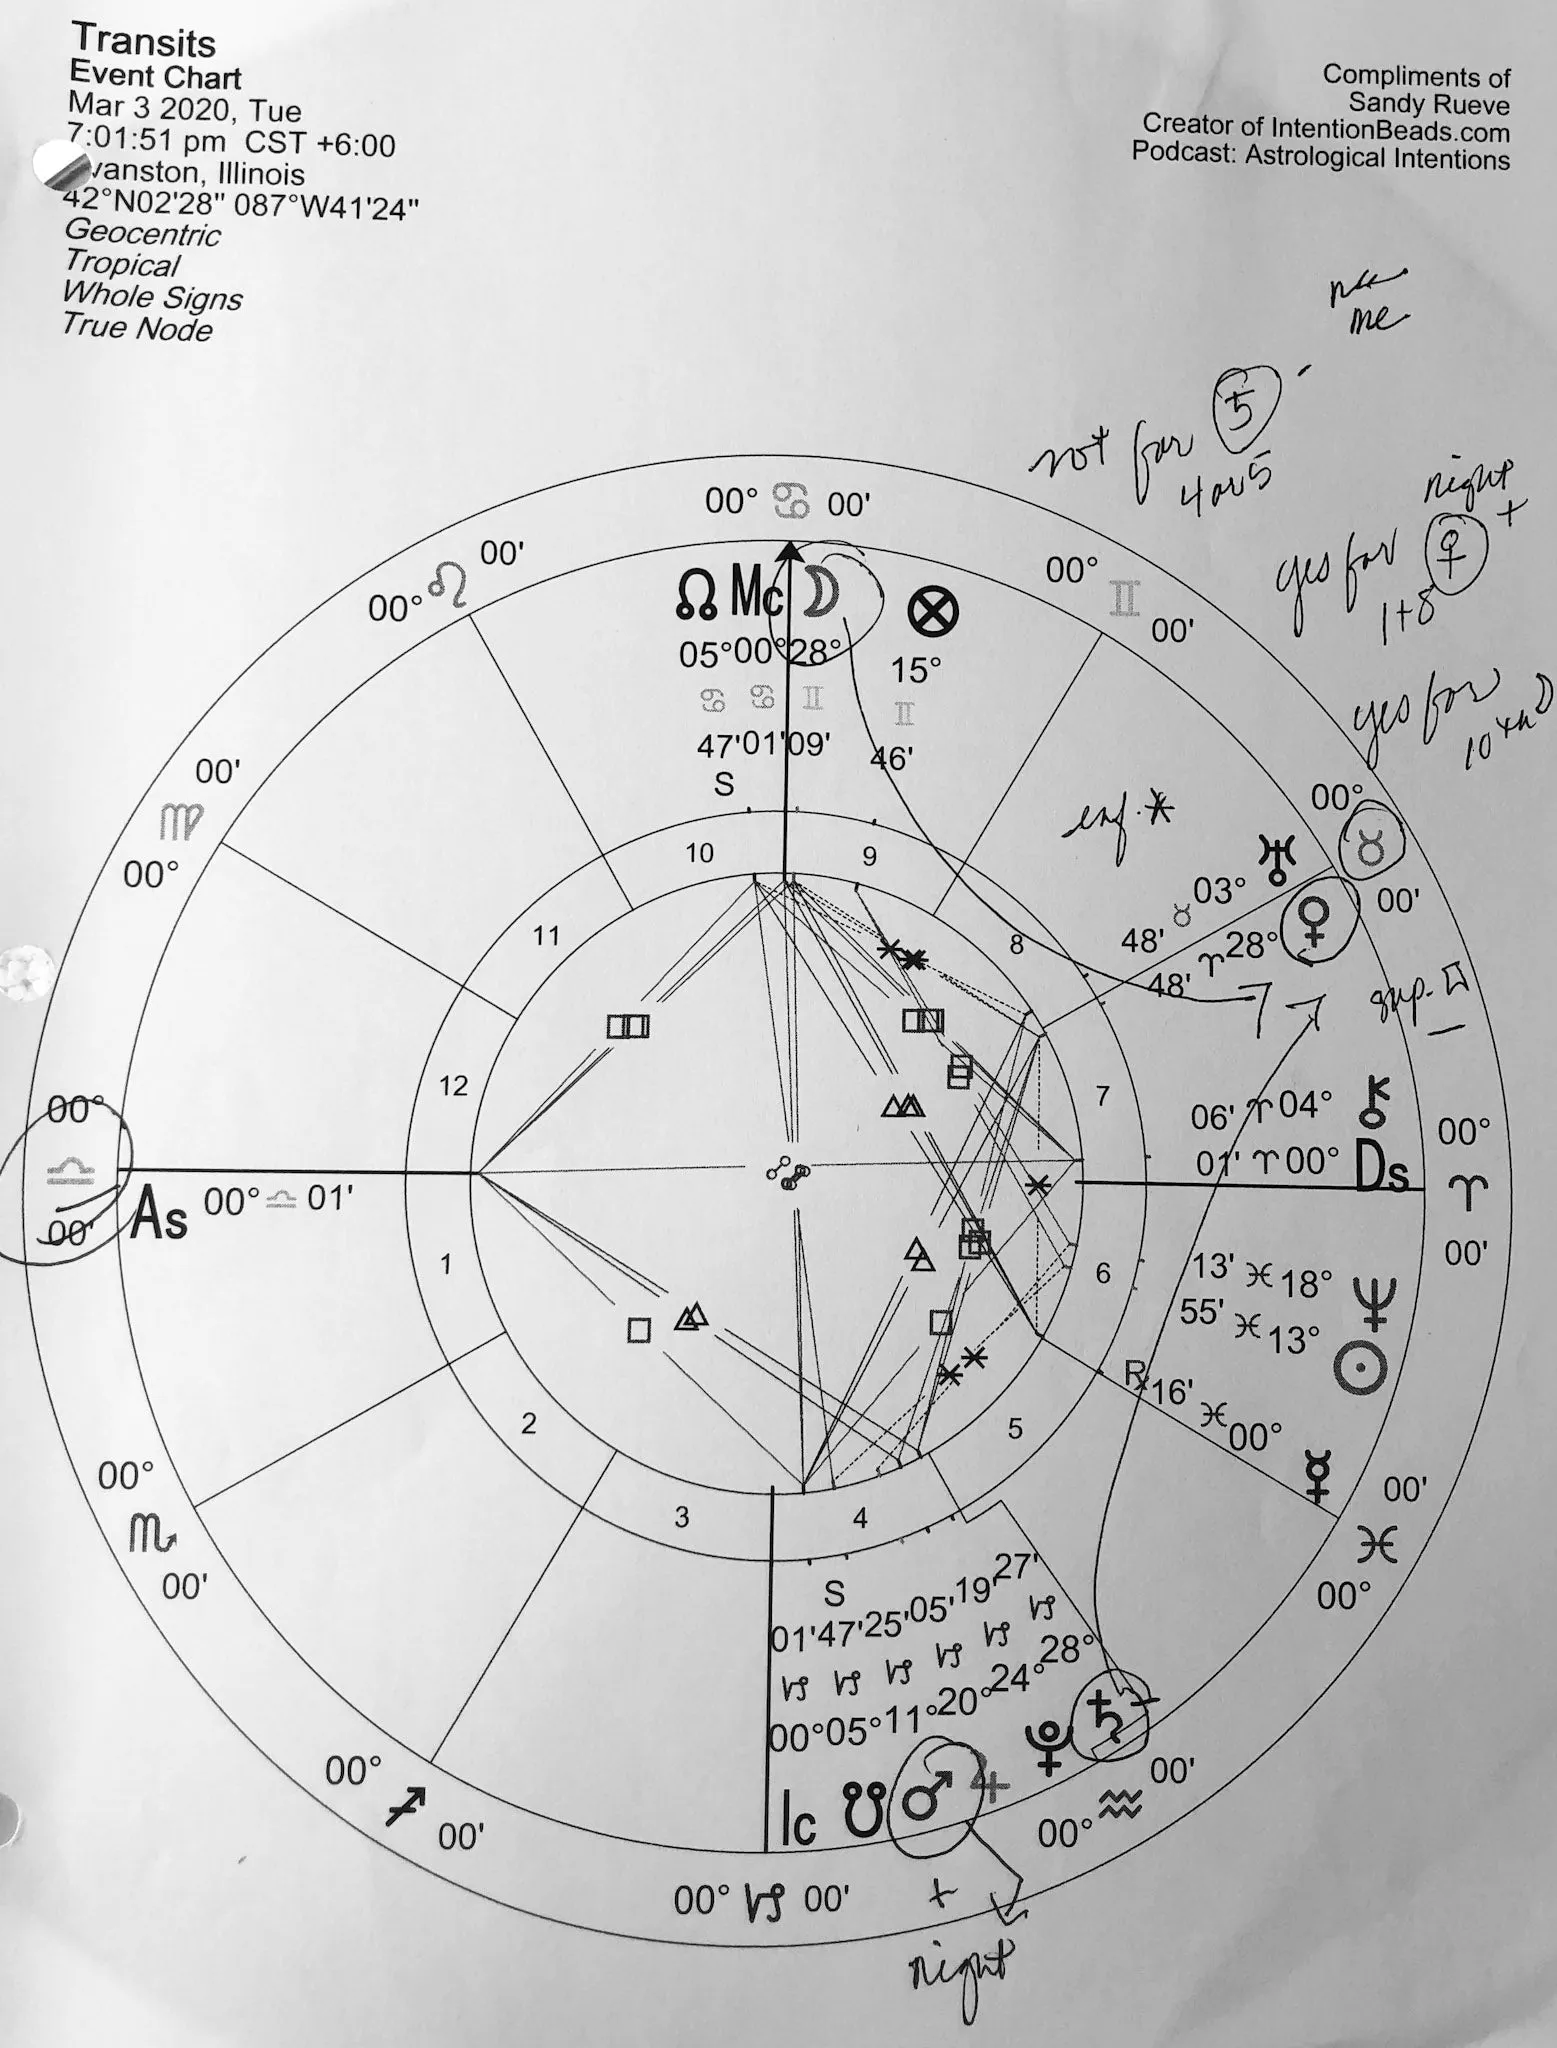 Transits
Event Chart
Mar 3 2020, Tue
7:01:51 pm CST +6:00
vanston, Illinois
42°N02'28" 087°W41'24"
Geocentric
Tropical
Whole Signs
True Node
Compliments of
Sandy Rueve
Creator of IntentionBeads.com
Podcast: Astrological Intentions
me
not for ♄
4 or 5
night
yes for ♀ +
1+8
yes for
10 ☽
00° ♋ 00'
00° ♌ 00'
00° ♊ 00'
☊ Mc ☽ ⊗
05° 00° 28° 15°
♋ ♋ ♊ ♊
47' 01' 09' 46'
S
00' ♍ 00°
00° ♉ 00'
48' ♉ 03° ♅
48' ♈ 28° ♀
sup. □
10 9
11 8
12 7
1 6
2 5
3 4
06' ♈ 04° ⚷
01' ♈ 00° Ds
00° ♎ 00'
As 00° ♎ 01'
00° ♈ 00'
13' ♓ 18° ♆
55' ♓ 13° ☉
℞ 16' ♓ 00° ☿
00° ♏ 00'
00' ♓ 00°
S
01' 47' 25' 05' 19' 27'
♑ ♑ ♑ ♑ ♑ ♑
00° 05° 11° 20° 24° 28°
Ic ☋ ♂ ♃ ♇ ♄
00° ♐ 00'
00° ♒ 00'
00° ♑ 00'
+
night